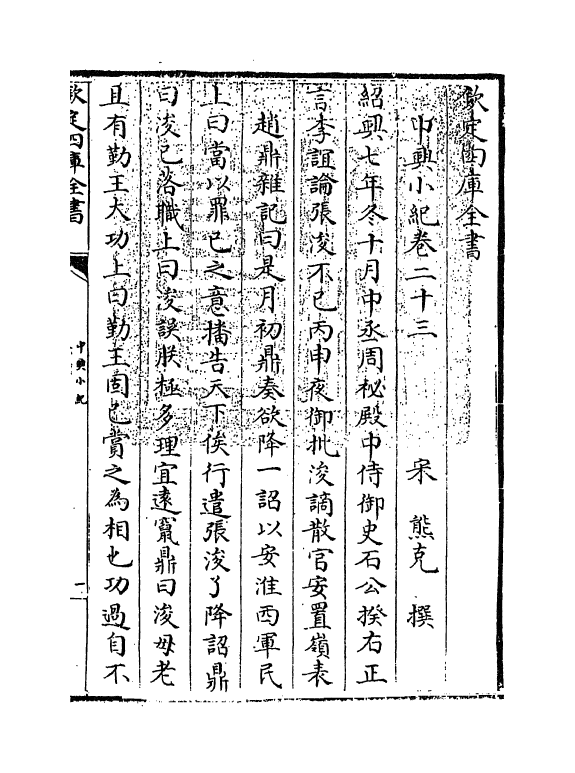 欽定四庫全書
中興小紀卷二十三
宋　熊克　撰
紹興七年冬十月中丞周秘殿中侍御史石公揆右正
言李誼論張浚不已丙申夜御批浚謫散官安置嶺表
趙鼎雜記曰是月初鼎奏欲降一詔以安淮西軍民
上曰當以罪己之意播告天下俟行遣張浚了降詔鼎
曰浚已落職上曰浚誤朕極多理宜遠竄鼎曰浚母老
且有勤王大功上曰勤王固已賞之為相也功過自不
欽定四庫全書
中興小紀
一